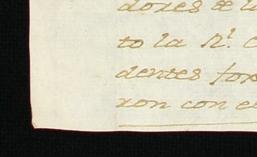 dores de la
to la Rl. C
dentes for
ron con e